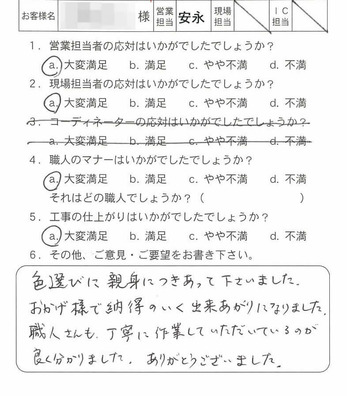 お客様名 様 営業担当 安永 現場担当 IC担当
1．営業担当者の応対はいかがでしたでしょうか？
a. 大変満足 b. 満足 c. やや不満 d. 不満
2．現場担当者の応対はいかがでしたでしょうか？
a. 大変満足 b. 満足 c. やや不満 d. 不満
3．コーディネーターの応対はいかがでしたでしょうか？
a. 大変満足 b. 満足 c. やや不満 d. 不満
4．職人のマナーはいかがでしたでしょうか？
a. 大変満足 b. 満足 c. やや不満 d. 不満
それはどの職人でしょうか？（ ）
5．工事の仕上がりはいかがでしたでしょうか？
a. 大変満足 b. 満足 c. やや不満 d. 不満
6．その他、ご意見・ご要望をお書き下さい。
色選びに親身につきあって下さいました。
おかげ様で納得のいく出来あがりになりました。
職人さんも、丁寧に作業していただいているのが
良く分かりました。ありがとうございました。